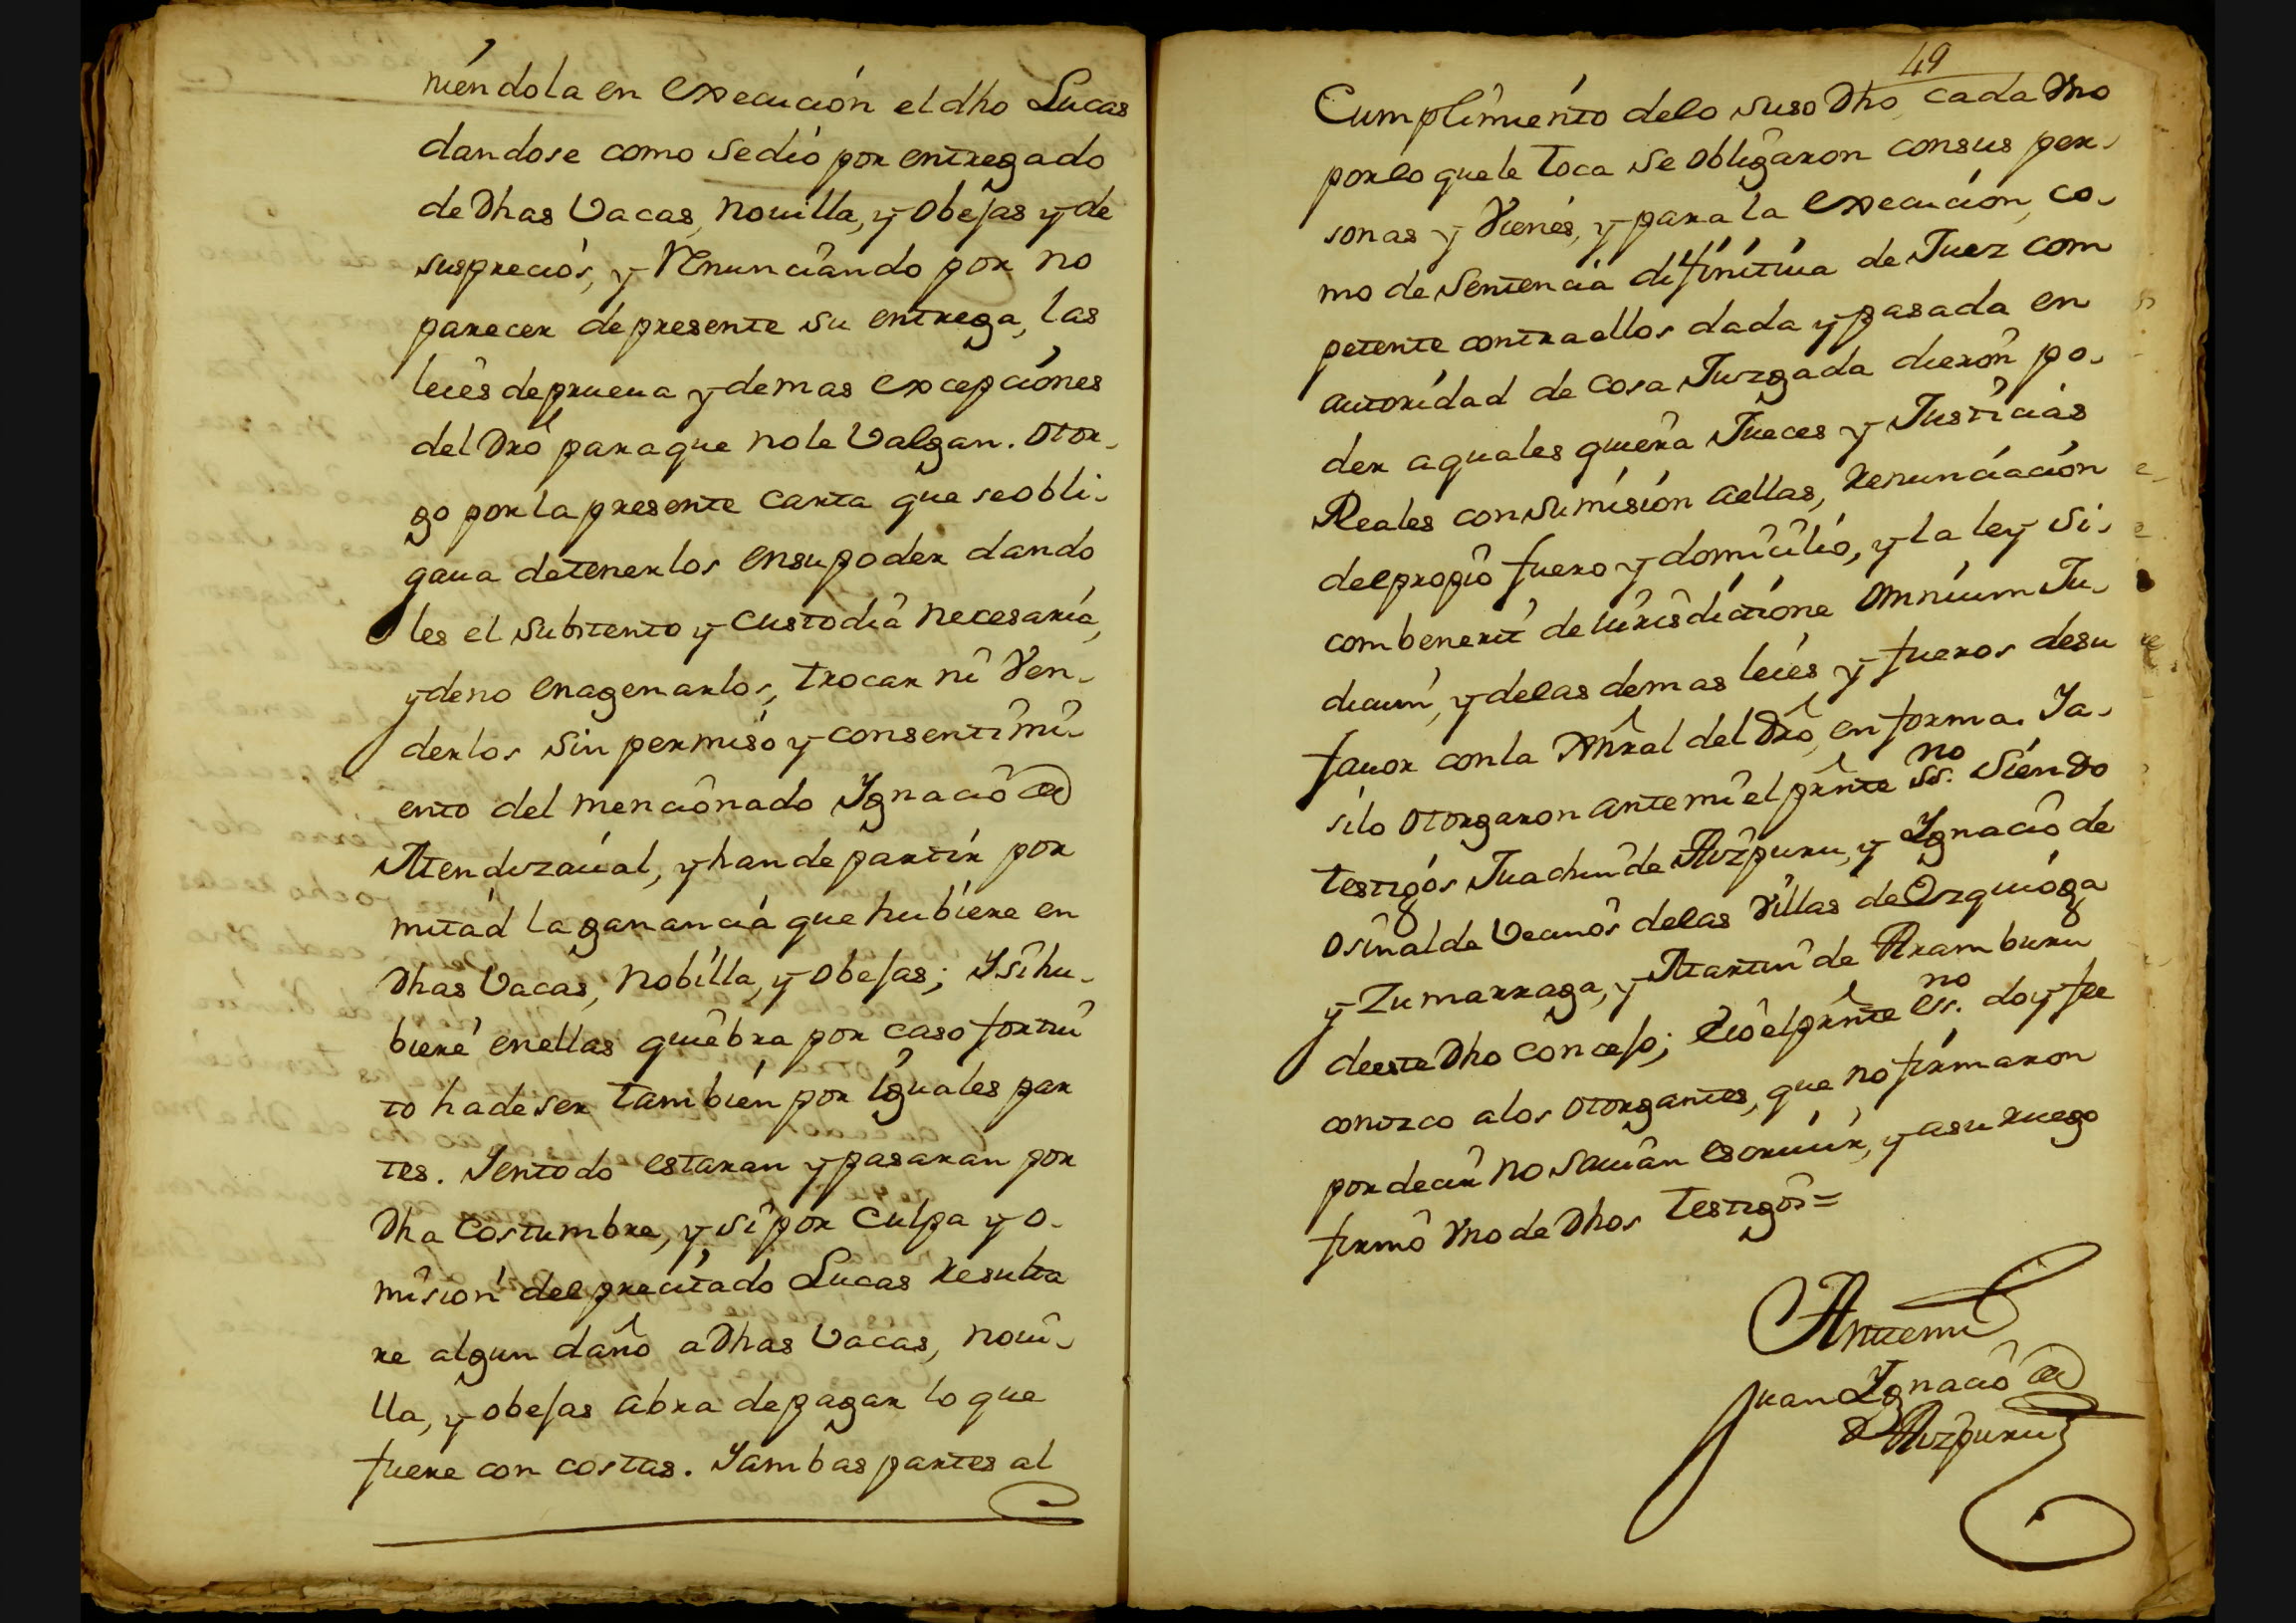 niendola en execucion el dho Lucas
dandose como se dio por entregado
de Dhas Vacas, nouilla, y obejas y de
sus precios, y Renunciando por no
parecer de presente su entrega, las
leies de prueua y demas excepciones
del Dro para que no le Valgan. Otor-
go por la presente carta que se obli-
gaua de tenerlos en su poder dando
les el subitento y custodia necesaria,
y de no enagenarlos, trocar ni Ven-
derlos sin permiso y consentimi-
ento del mencionado Ygnacio de
Mendizaual, y han de partir por
mitad la ganancia que hubiere en
Dhas Vacas, nobilla, y obejas; Y si hu-
biere en ellas quiebra por caso fortui
to ha de ser tambien por iguales par
tes. Y en todo estaran y pasaran por
Dha Costumbre, y si por culpa y o-
mision del precitado Lucas Resulta
re algun daño a Dhas Vacas, noui-
lla, y obejas abra de pagar lo que
fuere con costas. Y ambas partes al
49
Cumplimiento de lo suso Dho, cada Vno
por lo que le toca se obligaron con sus per-
sonas y Vienes, y para la execucion, co-
mo de Sentencia difinitiua de Juez com
petente contra ellos dada y pasada en
autoridad de cosa Juzgada dieron po-
der a quales quiera Jueces y Justicias
Reales con sumision a ellas, Renunciacion
del propio fuero y domicilio, y la ley si-
combenerit de iurisdictione omnium Ju-
dicum, y de las demas leies y fueros de su
fauor con la Gnral del Dro en forma. Ya-
si lo otorgaron ante mi el prnte ss.no siendo
testigos Juachin de Aizpuru, y Ygnacio de
Osinalde Vecinos de las Villas de Ezquioga
y Zumarraga, y Martin de Aramburu
de este Dho concejo; e io el prnte es.no doy fee
conozco a los otorgantes, que no firmaron
por decir no sauian escriuir, y a su ruego
firmo Vno de Dhos testigos =
Antemi
Juan Ygnacio de
Aizpuru